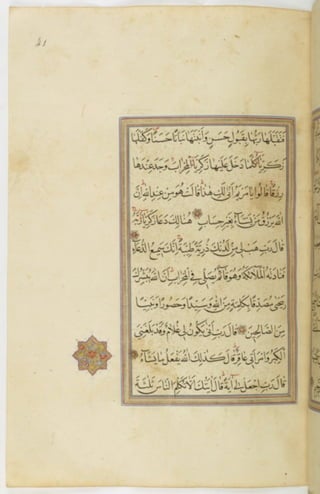 ٤١
فَتَقَبَّلَهَا رَبُّهَا بِقَبُولٍ حَسَنٍ وَأَنْبَتَهَا نَبَاتًا حَسَنًا وَكَفَّلَهَا
زَكَرِيَّا كُلَّمَا دَخَلَ عَلَيْهَا زَكَرِيَّا الْمِحْرَابَ وَجَدَ عِنْدَهَا
رِزْقًا قَالَ يَا مَرْيَمُ أَنَّى لَكِ هٰذَا قَالَتْ هُوَ مِنْ عِنْدِ اللّٰهِ إِنَّ
اللّٰهَ يَرْزُقُ مَنْ يَشَاءُ بِغَيْرِ حِسَابٍ هُنَالِكَ دَعَا زَكَرِيَّا رَبَّهُ
قَالَ رَبِّ هَبْ لِي مِنْ لَدُنْكَ ذُرِّيَّةً طَيِّبَةً إِنَّكَ سَمِيعُ الدُّعَاءِ
فَنَادَتْهُ الْمَلَائِكَةُ وَهُوَ قَائِمٌ يُصَلِّي فِي الْمِحْرَابِ أَنَّ اللّٰهَ يُبَشِّرُكَ
بِيَحْيَى مُصَدِّقًا بِكَلِمَةٍ مِنَ اللّٰهِ وَسَيِّدًا وَحَصُورًا وَنَبِيًّا
مِنَ الصَّالِحِينَ قَالَ رَبِّ أَنَّى يَكُونُ لِي غُلَامٌ وَقَدْ بَلَغَنِيَ
الْكِبَرُ وَامْرَأَتِي عَاقِرٌ قَالَ كَذٰلِكَ اللّٰهُ يَفْعَلُ مَا يَشَاءُ
قَالَ رَبِّ اجْعَلْ لِي آيَةً قَالَ آيَتُكَ أَلَّا تُكَلِّمَ النَّاسَ ثَلٰثَةَ